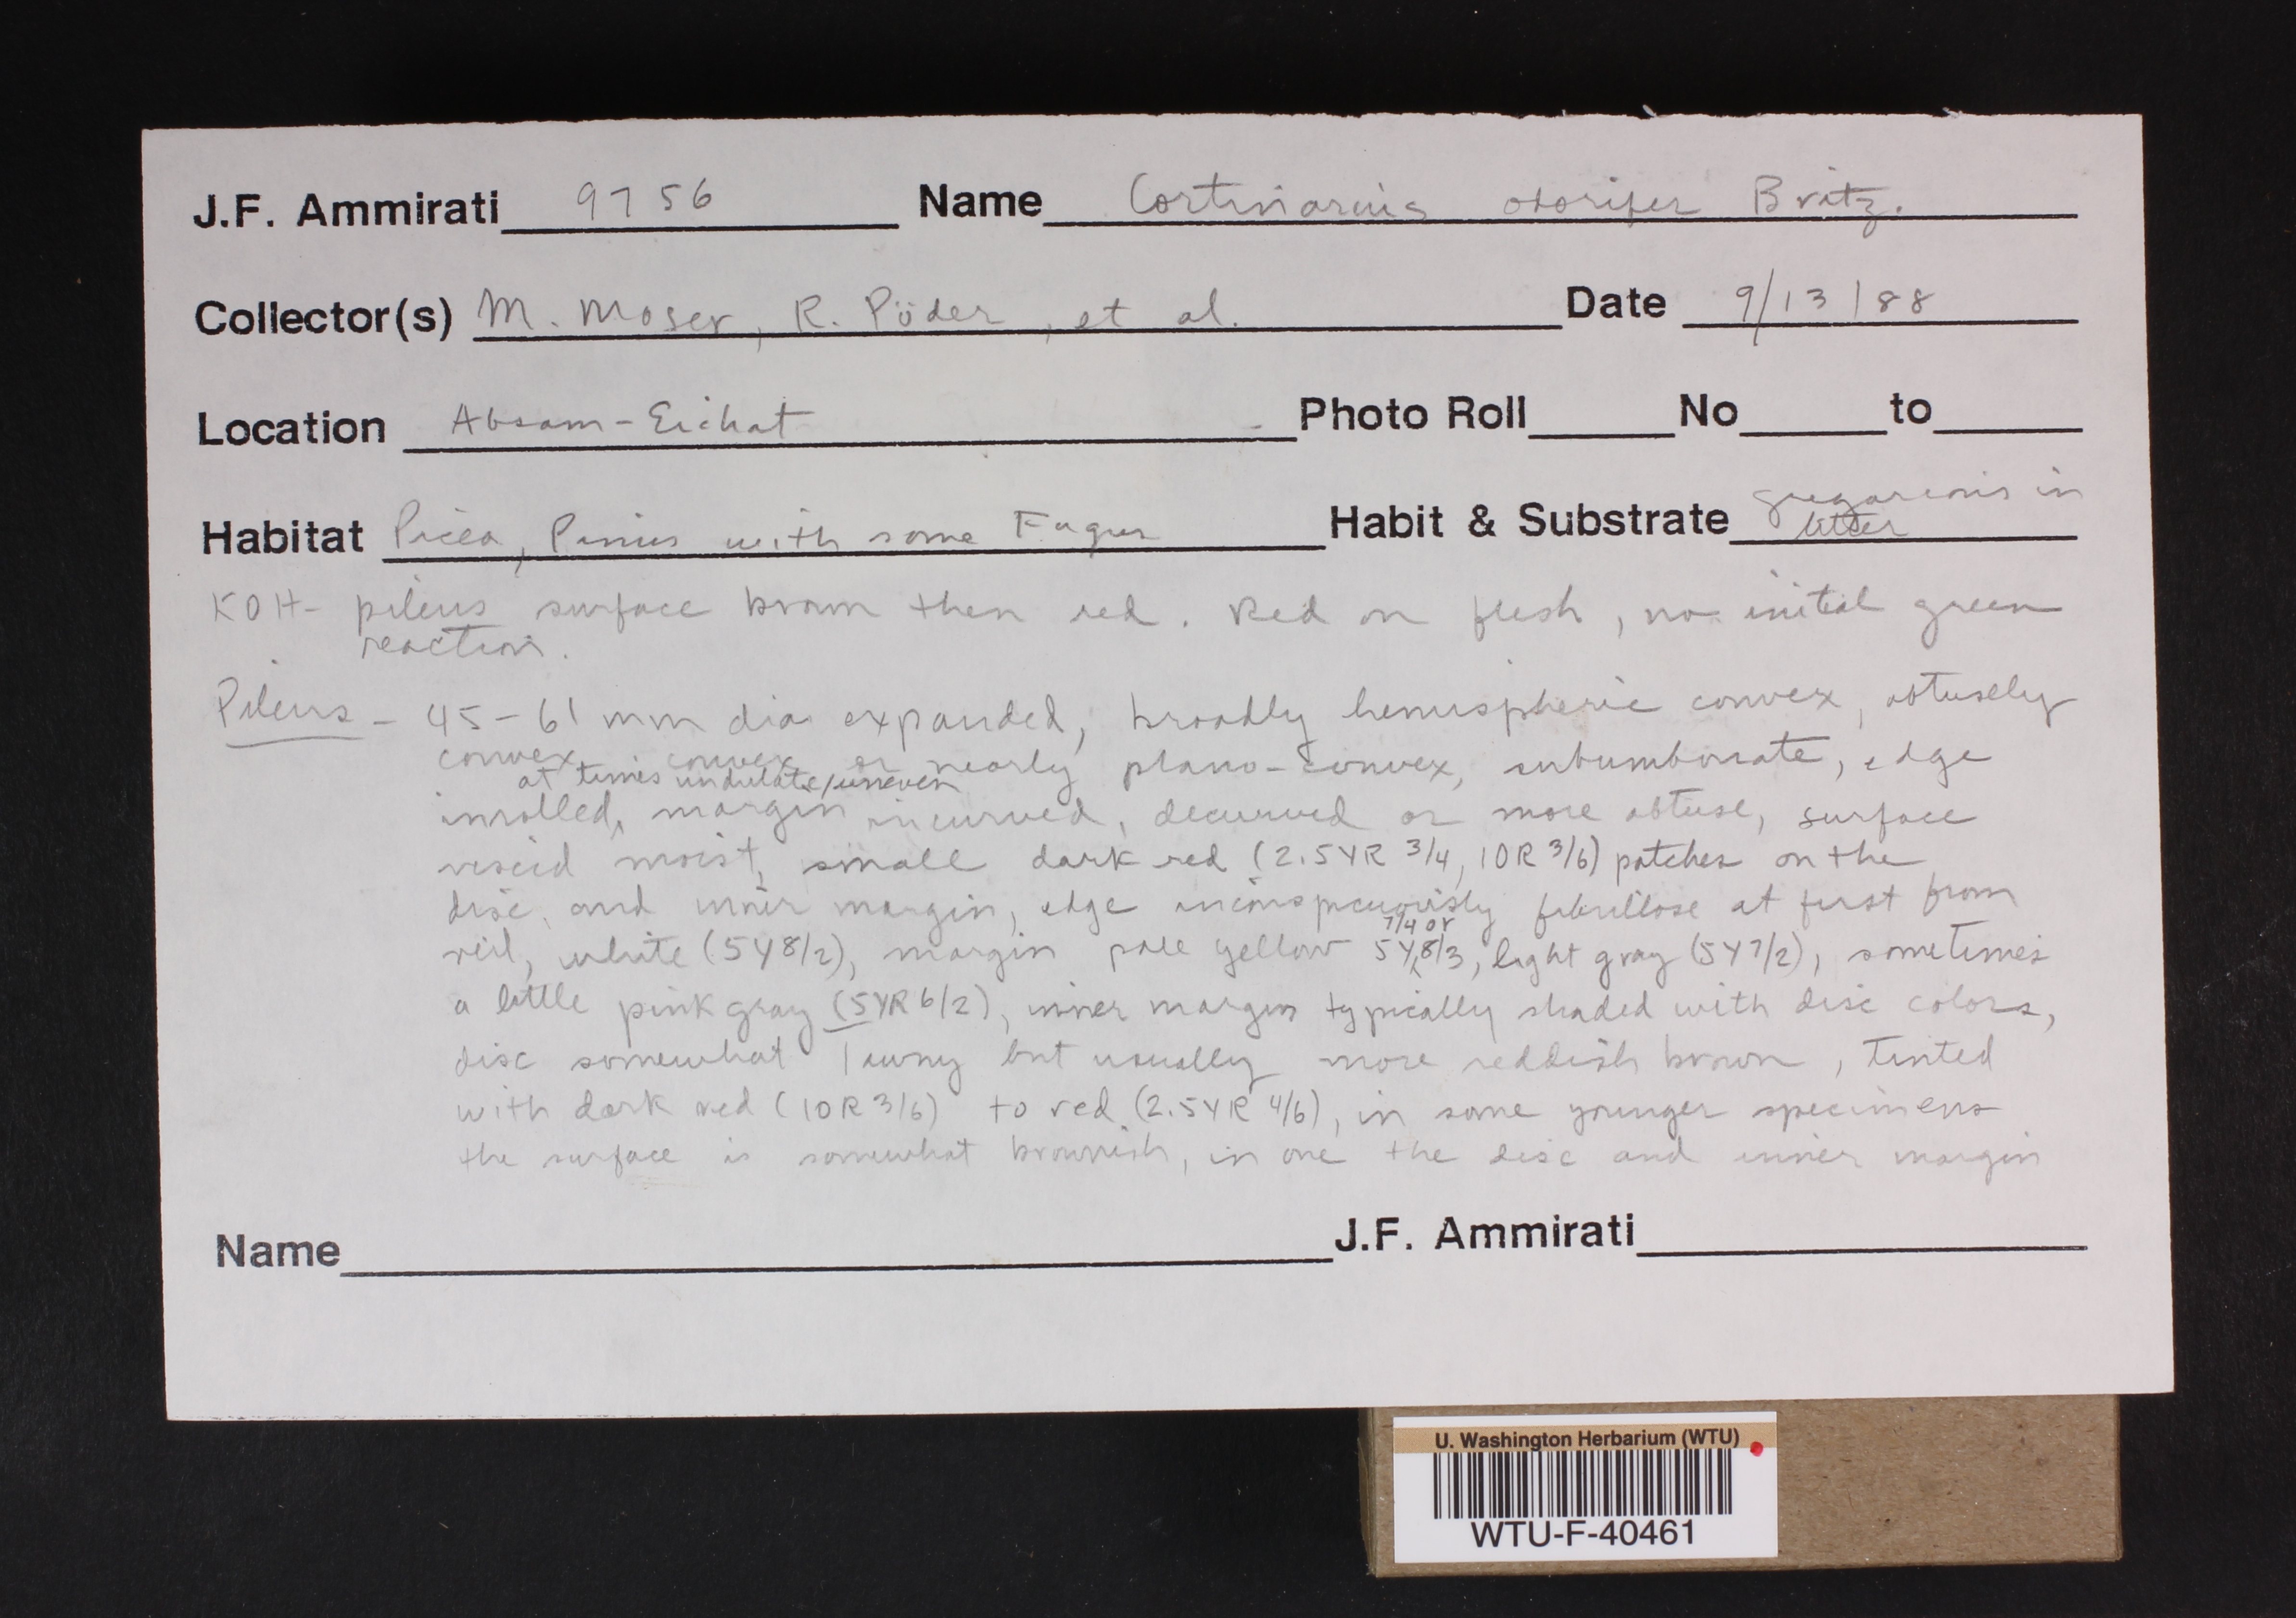 J.F. Ammirati 9756 Name Cortinarius odorifer Britz.
Collector(s) M. Moser, R. Pöder, et al. Date 9/13/88
Location Absam-Eichat Photo Roll No to
Habitat Picea, Pinus with some Fagus Habit & Substrate gregareous in
litter
KOH- pileus surface brown then red. Red on flesh, no initial green
reaction.
Pileus - 45-61 mm dia expanded, broadly hemispheric convex, obtusely
convex, convex or nearly plano-convex, subumbonate, edge
at times undulate/uneven
inrolled, margin incurved, decurved or more obtuse, surface
viscid moist, small dark red (2.5YR 3/4, 10R 3/6) patches on the
disc, and inner margin, edge inconspicuously fibrillose at first from
7/4 or
veil, white (5Y8/2), margin pale yellow 5Y8/3, light gray (5Y7/2), sometimes
a little pink gray (5YR6/2), inner margin typically shaded with disc colors,
disc somewhat Tawny but usually more reddish brown, tinted
with dark red (10R 3/6) to red (2.5YR 4/6), in some younger specimens
the surface is somewhat brownish, in one the disc and inner margin
Name J.F. Ammirati
U. Washington Herbarium (WTU)
WTU-F-40461